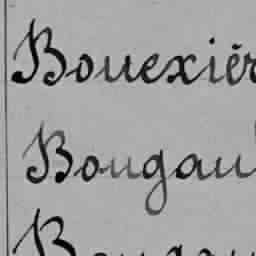 Bouexiér
Bougau